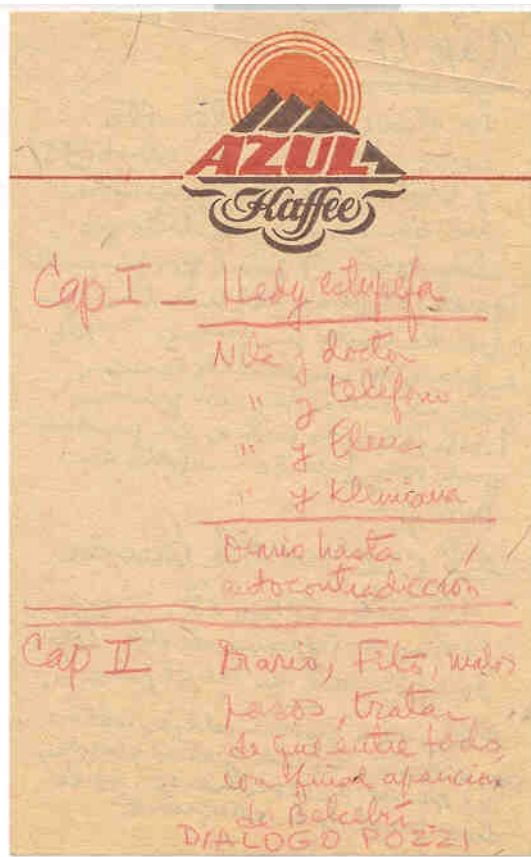 AZUL
Kaffee
Cap I — Hedy estupefa
Nile y doctor
" y teléfono
" y Elena
" y kleiniana
Diario hasta
autocontradicción
Cap II Diario, Fito, malos
pasos, tratar
de que entre todo
con final aparición
de Belcebú
DIALOGO POZZI